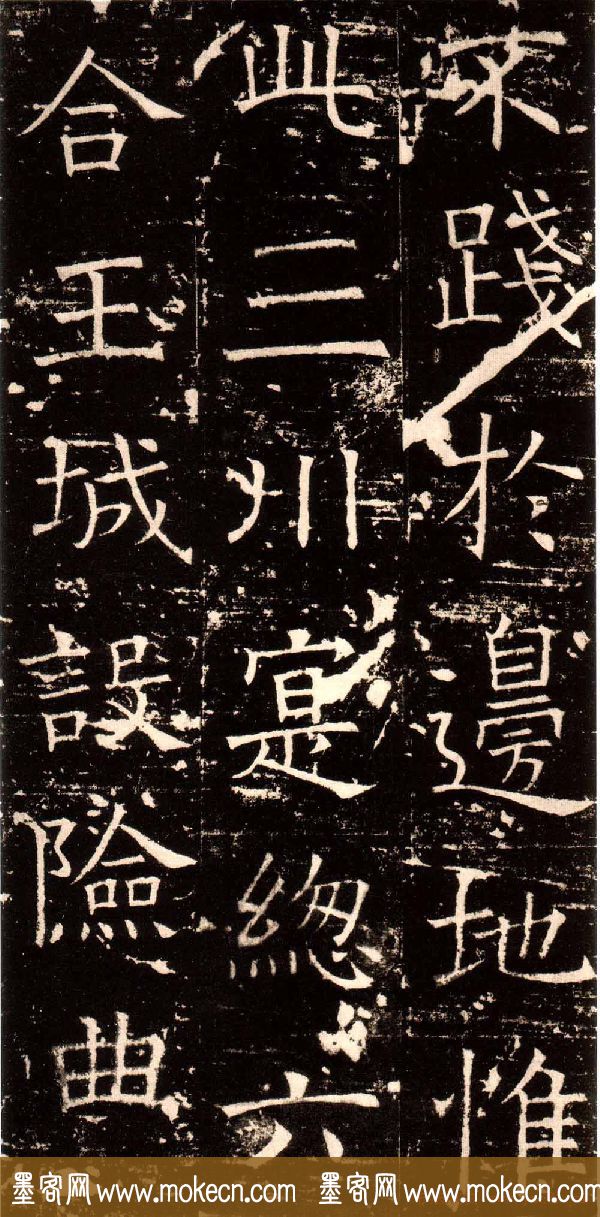 不踐於邊地惟
此三州寔總六
合王城設險曲
墨客网 www.mokecn.com 墨客网 www.mokecn.com